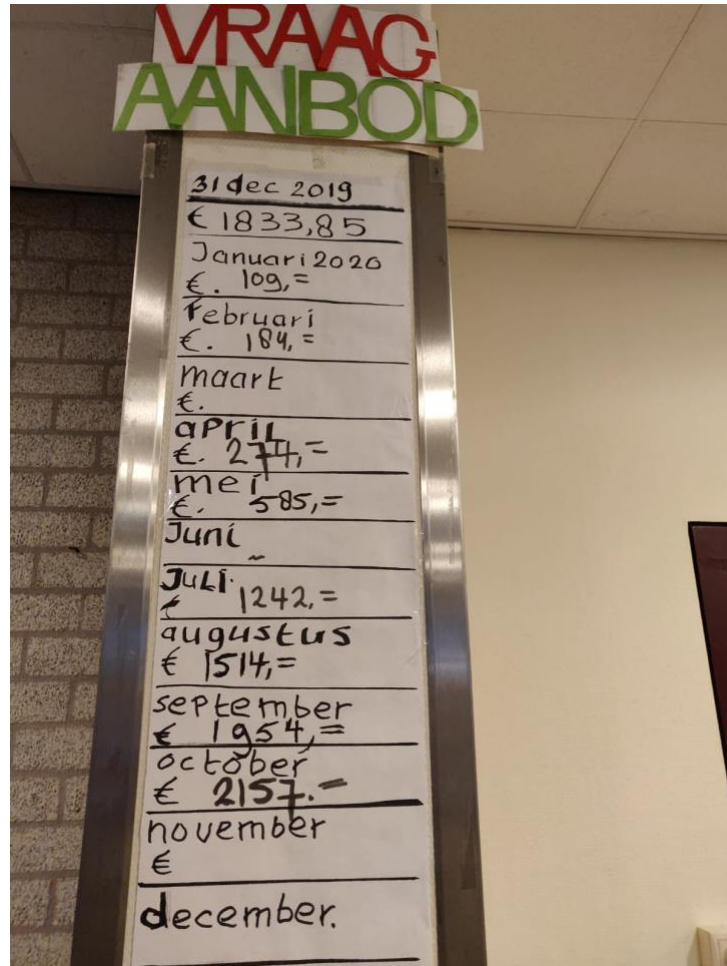 VRAAG
AANBOD
31 dec 2019
€ 1833,85
Januari 2020
€. 109,=
februari
€. 184,=
maart
€.
april
€. 274,=
mei
€. 585,=
Juni
~
Juli.
€ 1242,=
augustus
€ 1514,=
september
€ 1954,=
october
€ 2157.=
november
€
december.